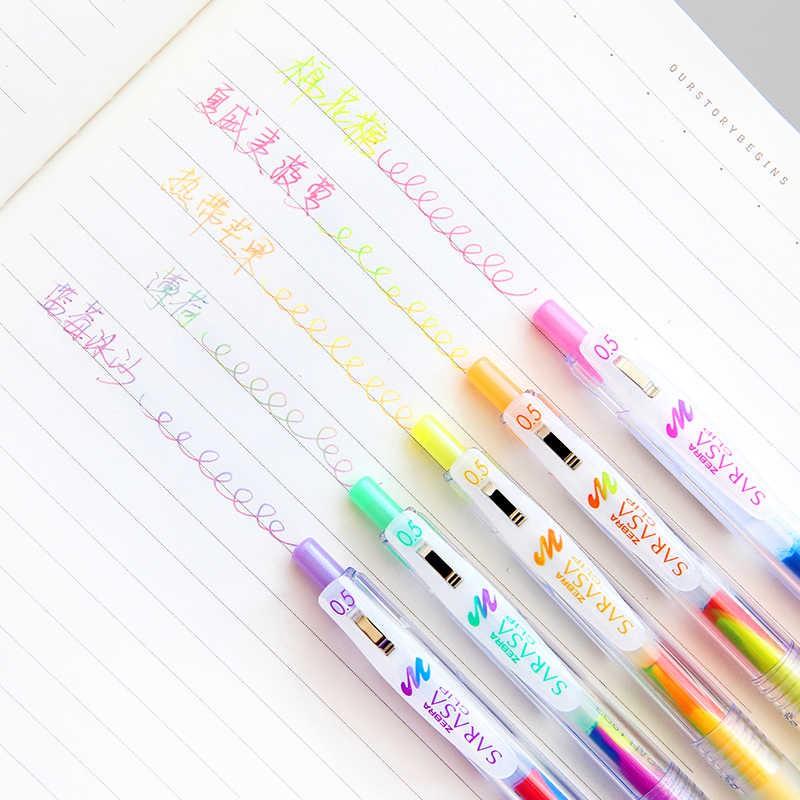 OURSTORYBEGINS
棉花糖
夏威夷菠萝
热带芒果
薄荷
蓝莓冰沙
0.5
ZEBRA
SARASA
CLIP
0.5
ZEBRA
SARASA
CLIP
0.5
ZEBRA
SARASA
CLIP
0.5
ZEBRA
SARASA
CLIP
0.5
ZEBRA
SARASA
CLIP